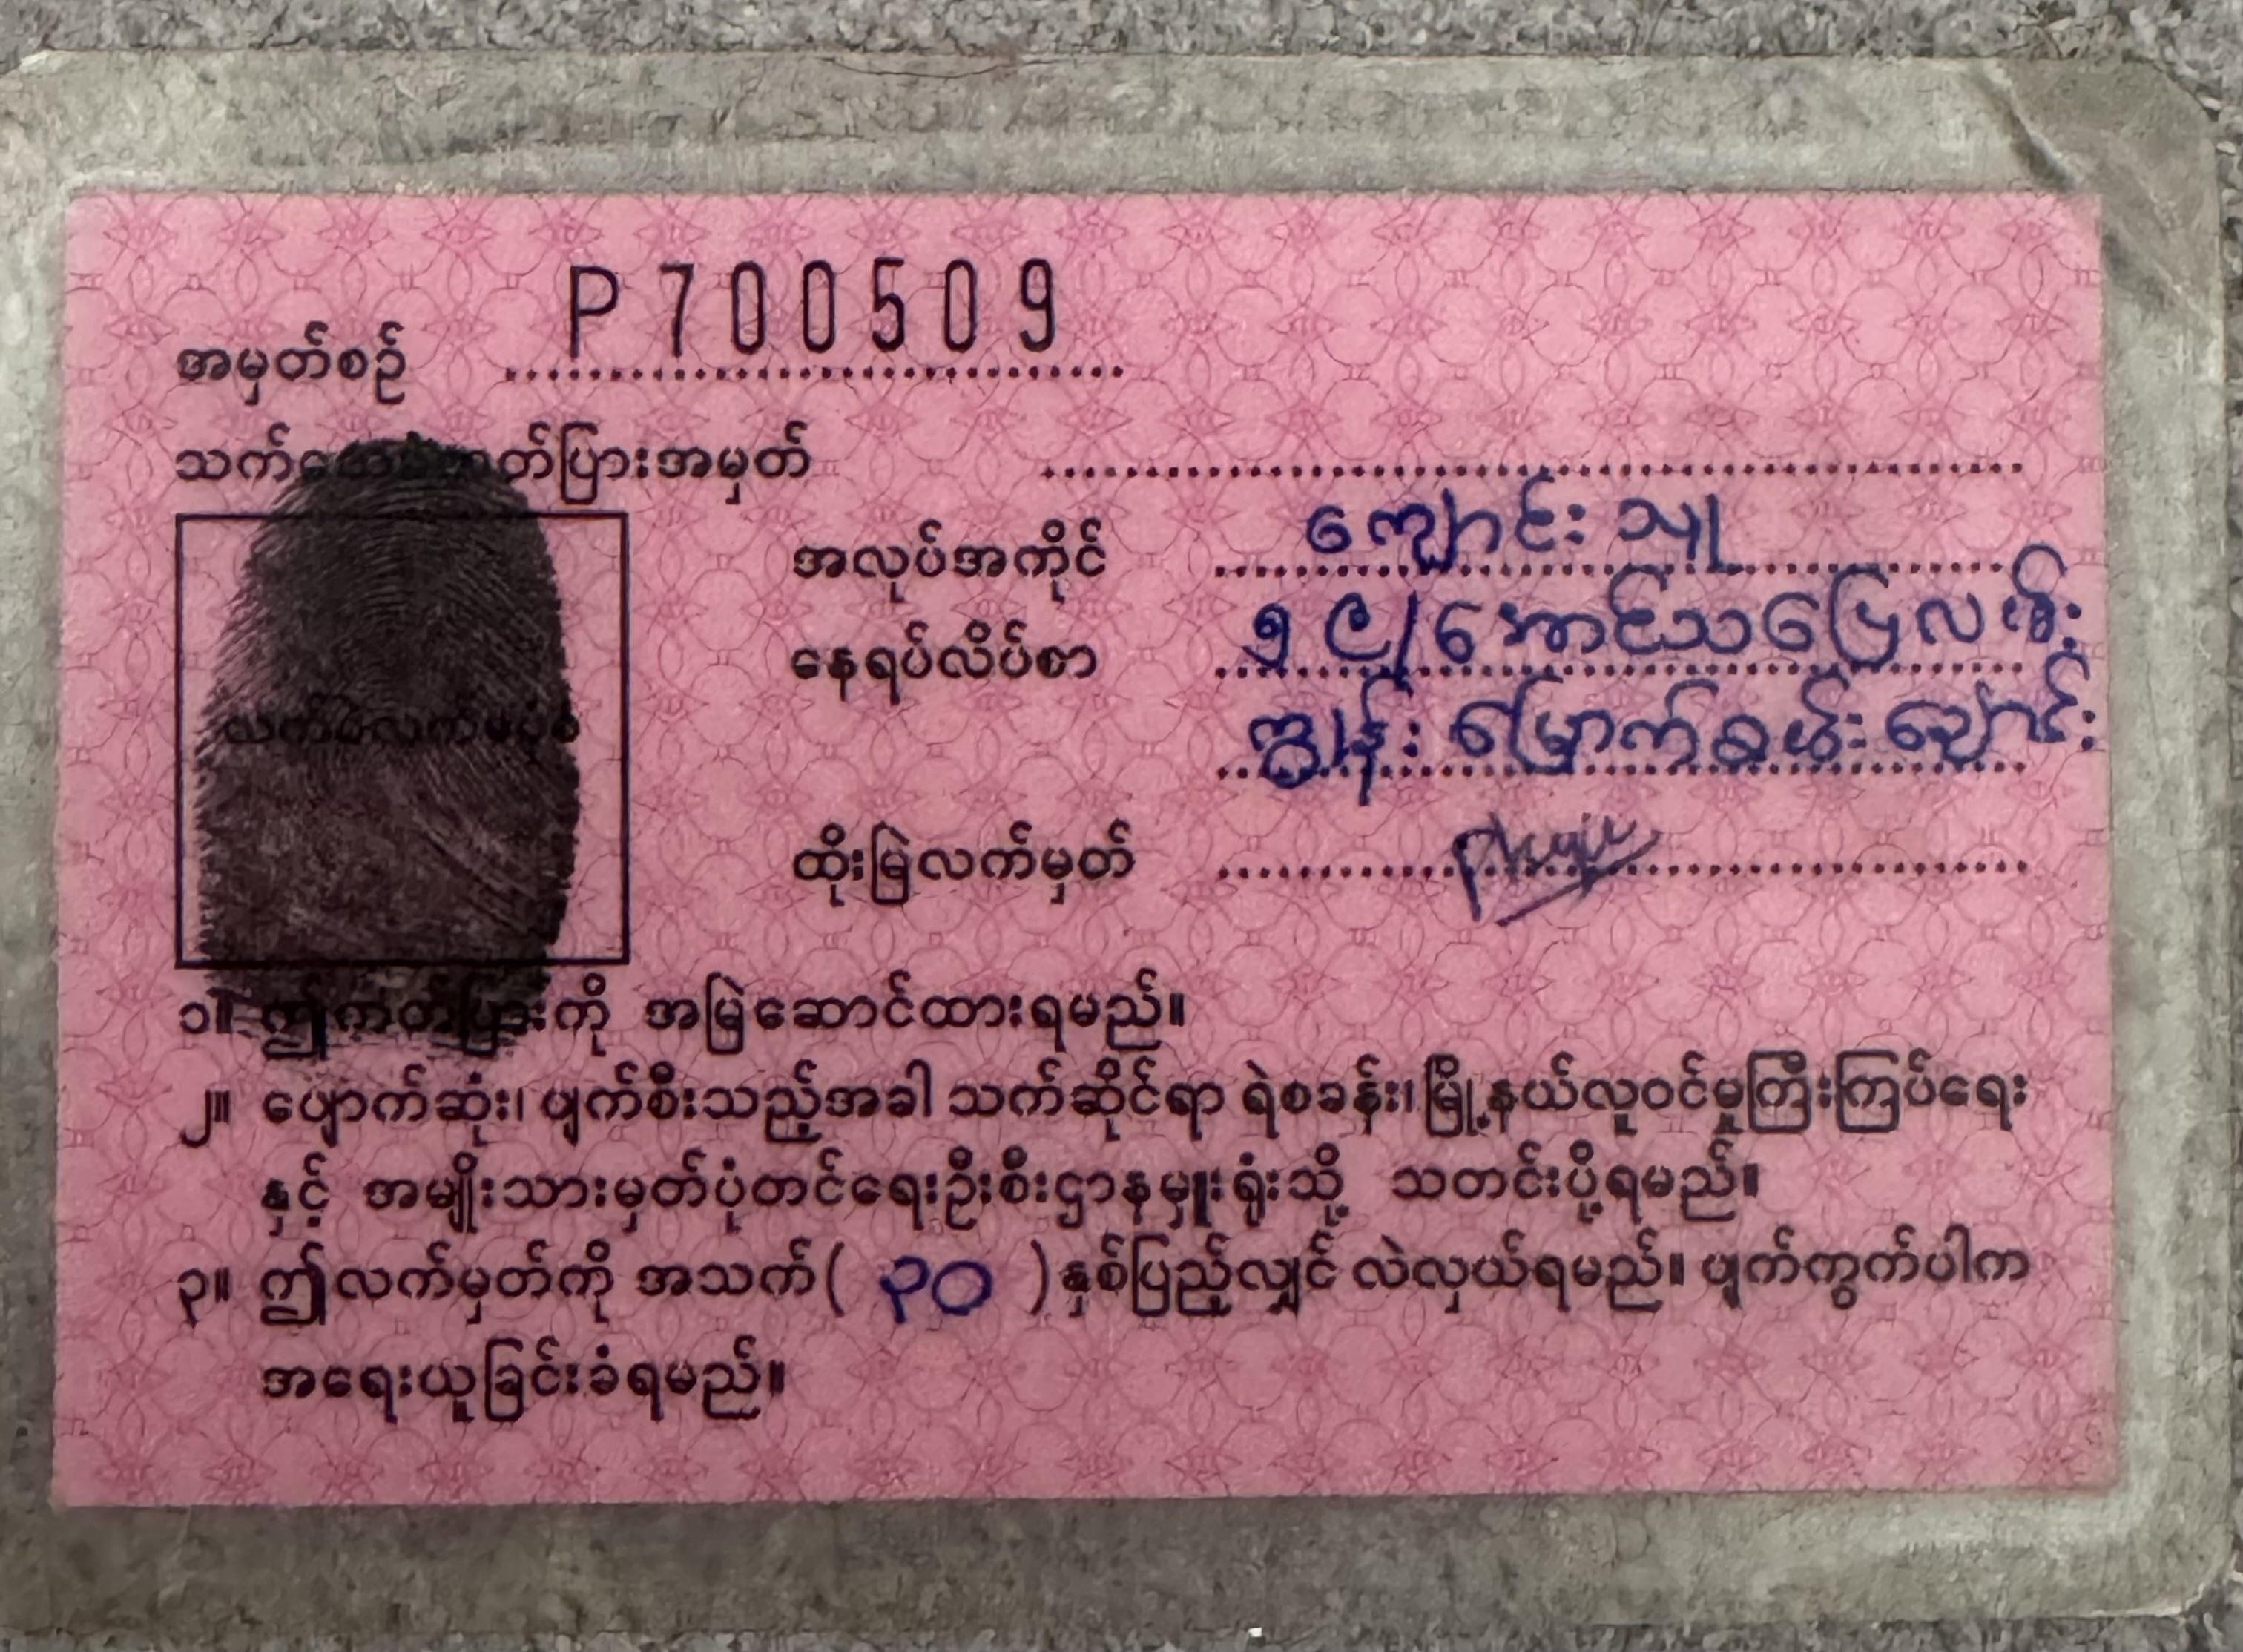 အမှတ်စဉ် P 700509
သက်သေခံကတ်ပြားအမှတ်
အလုပ်အကိုင် ကျောင်းသူ
နေရပ်လိပ်စာ ၅၉/အောင်သပြေလမ်း
ကျွန်းမြောက်ခမ်းချောင်း
လက်ဝဲလက်မပုံစံ
ထိုးမြဲလက်မှတ်
၁။ ဤကတ်ပြားကို အမြဲဆောင်ထားရမည်။
၂။ ပျောက်ဆုံး၊ ပျက်စီးသည့်အခါ သက်ဆိုင်ရာ ရဲစခန်း၊ မြို့နယ်လူဝင်မှုကြီးကြပ်ရေး
နှင့် အမျိုးသားမှတ်ပုံတင်ရေးဦးစီးဌာနမှူးရုံးသို့ သတင်းပို့ရမည်။
၃။ ဤလက်မှတ်ကို အသက် ( ၃၀ ) နှစ်ပြည့်လျှင် လဲလှယ်ရမည်။ ပျက်ကွက်ပါက
အရေးယူခြင်းခံရမည်။